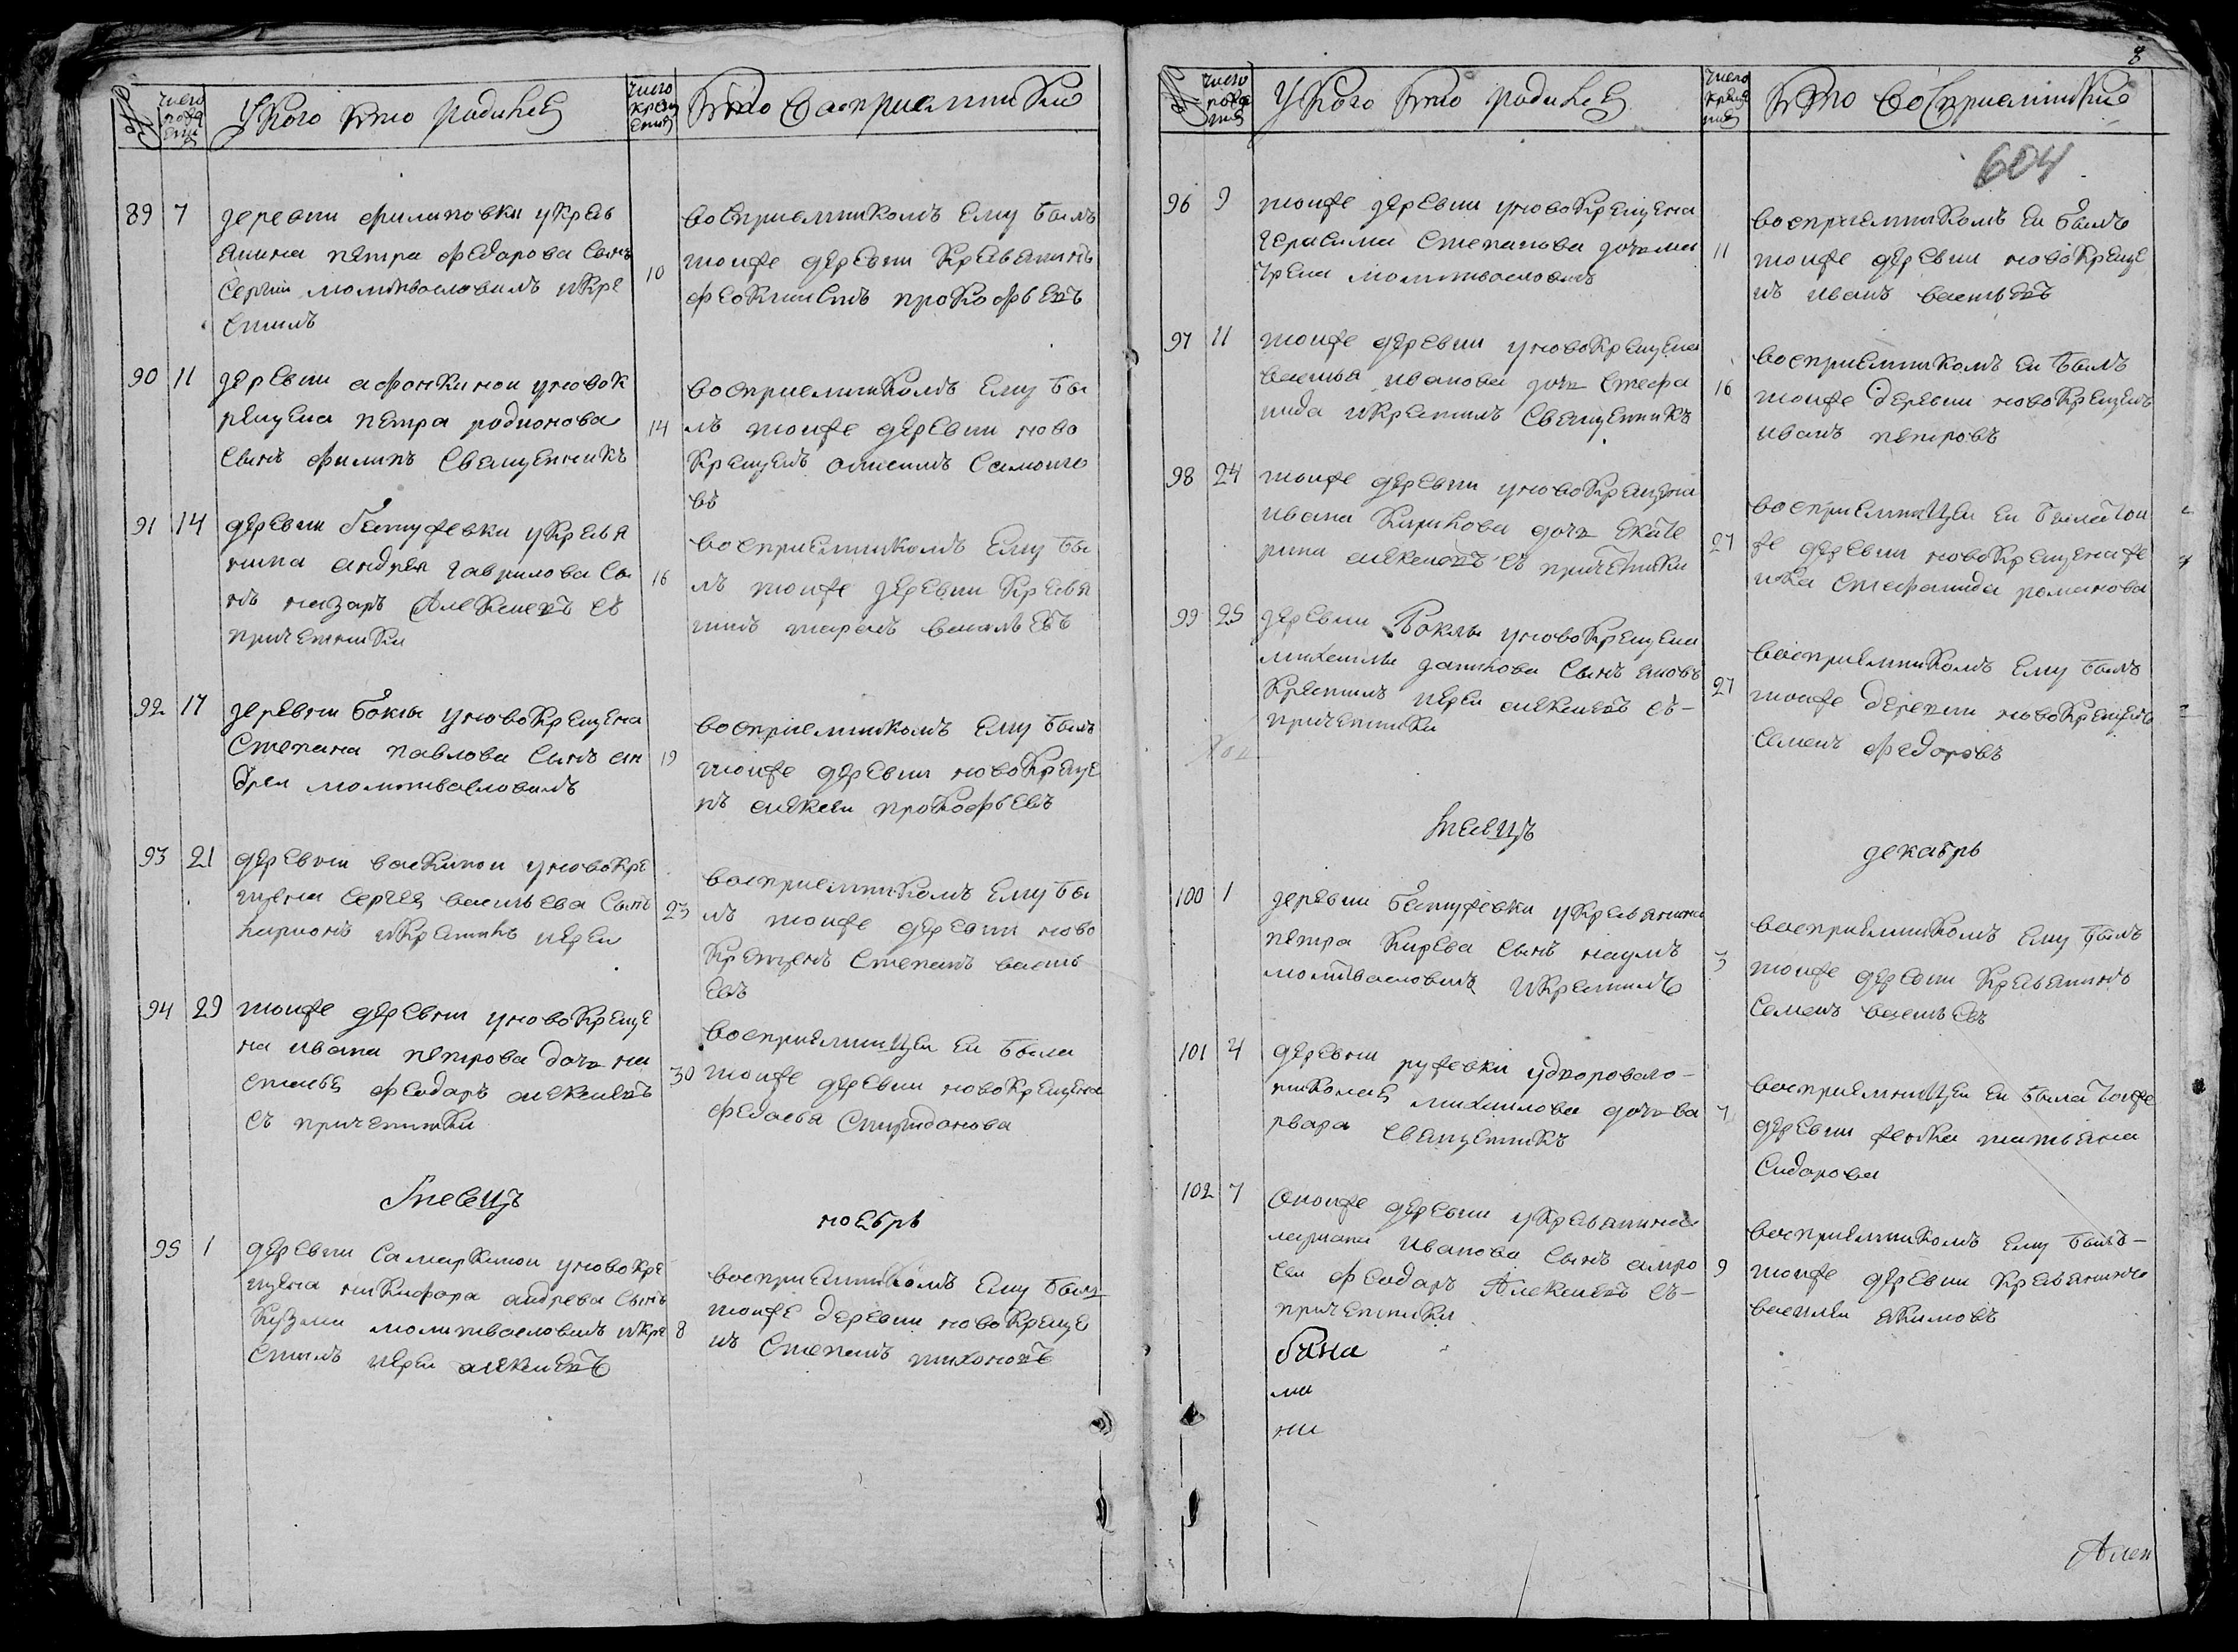 число рожде ния
У кого кто родился
число креще ния
Кто восприемники
89 7 деревни филиповки укресь
янина петра федорова сынъ
сергии молитвословилъ икре
стилъ
10
восприемникомъ ему былъ
тоиже деревни кресьянинъ
феоктистъ прокофьевъ
90 11 деревни афонкинои уновок
рещена петра родионова
сынъ филипъ священникъ
14
восприемникомъ ему бы
лъ тоиже деревни ново
крещенъ
въ
91 14 деревни укресья
нина андрея гаврилова сы
нъ назаръ алексеевъ съ
причетники
16
восприемникомъ ему бы
лъ тоиже деревни кресья
нинъ тарасъ
92 17 деревни боклы уновокрещена
степана павлова сынъ ан
дреи молитвословилъ
19
восприемникомъ ему былъ
тоиже деревни новокреще
нъ алексеи прокофьевъ
93 21 деревни васкинои уновокре
щена сергея васильева сынъ
ларионъ икрестилъ иереи
23
восприемникомъ ему бы
лъ тоиже деревни ново
крещенъ степанъ василь
евъ
94 29 тоиже деревни уновокреще
на ивана петрова дочь на
стасья феодоръ алексеевъ
съ причетники
30
восприемницеи еи была
тоиже деревни новокрещена
федосья спиридонова
месецъ
ноебрь
95 1 деревни самаркинои уновокре
щена никифора андреева сынъ
кузма молитвословилъ икре
стилъ иереи алексеевъ
8
восприемникомъ ему былъ
тоиже деревни новокреще
нъ степанъ тихоновъ
8
число рожде ния
У кого кто родился
число креще ния
Кто восприемники
604
96 9 тоиже деревни уновокрещена
герасима степанова дочь ма
молитвословилъ
11
восприемникомъ еи былъ
тоиже деревни новокреще
нъ иванъ васильевъ
97 11 тоиже деревни уновокрещена
василья иванова дочь стефа
нида икрестилъ священникъ
16
восприемникомъ еи былъ
тоиже деревни новокрещенъ
иванъ петровъ
98 24 тоиже деревни уновокрещена
ивана кирилова дочь екате
рина алексеевъ съ причетники
27
восприемницеи еи была тои
же деревни новокрещена же
нка стефанида романова
99 25 деревни боклы уновокрещена
михаилы данилова сынъ яковъ
крестилъ иереи алексеевъ съ-
причетники
27
восприемникомъ ему былъ
тоиже деревни новокрещенъ
семенъ федоровъ
месецъ
декабрь
100 1 деревни укресьянина
петра кирева сынъ наумъ
молитвословилъ икрестилъ
3
восприемникомъ ему былъ
тоиже деревни кресьянинъ
семенъ васильевъ
101 4 деревни ружевки удворового-
николая михаилова дочь ва
рвара священникъ
7
восприемницеи еи была тоиже
деревни женка татьяна
сидорова
102 7 оноиже деревни укресьянина
иванова сынъ амро
сеи феодоръ алексеевъ съ-
причетники
9
восприемникомъ ему былъ-
тоиже деревни кресьянинъ
василеи якимовъ
ми
ни
Алек